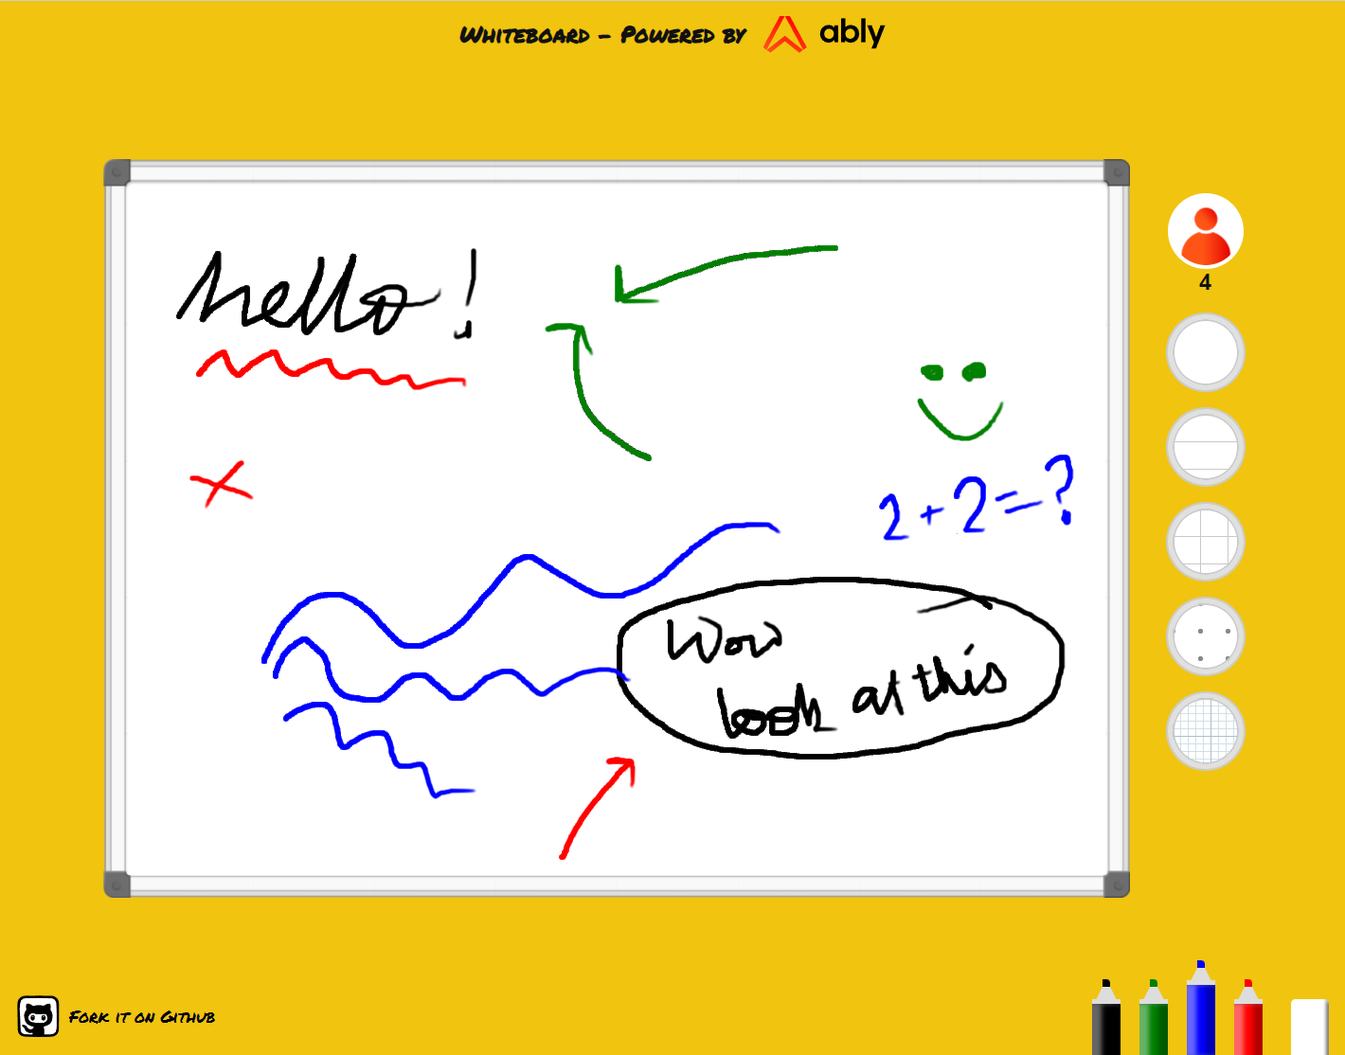 Whiteboard - Powered by ably
hello!
4
2+2=?
Wow
look at this
Fork it on Github